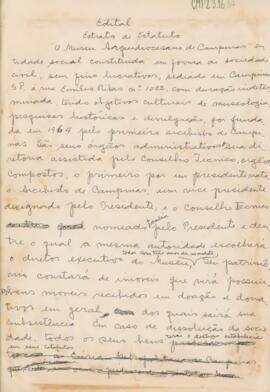 CMP2.3.16.37
Edital
Extrato de Estatuto
"O Museu Arquidiocesano de Campinas" en
tidade social constituida em forma de sociedade
civil, sem fins lucrativos, sediado em Campinas
SP. á rua Emilio Ribas nº 1082, com duração indeter
minada, tendo objetivos culturais de museologia
pesquisas históricas e divulgação, foi funda
da em 1964 pelo primeiro arcebispo de Campi
nas. São seus órgãos administrativos: Sua di
retoria assistida pelo Conselho Técnico, orgãos
compostos, o primeiro por um presidente nato
o Arcebispo de Campinas, um vice presidente
designado pelo Presidente, e o Conselho Tecnico
nomeado pelo Presidente e den
tre o qual a mesma autoridade escolherá
o diretor executivo do Museu, Seu patrimo
nio constará de imoveis que virá possuir
bens moveis recebidos em doação e dona
tivos em geral dos quais sairá sua
subsistência. Em caso de dissolução da so
ciedade, todos os seus bens